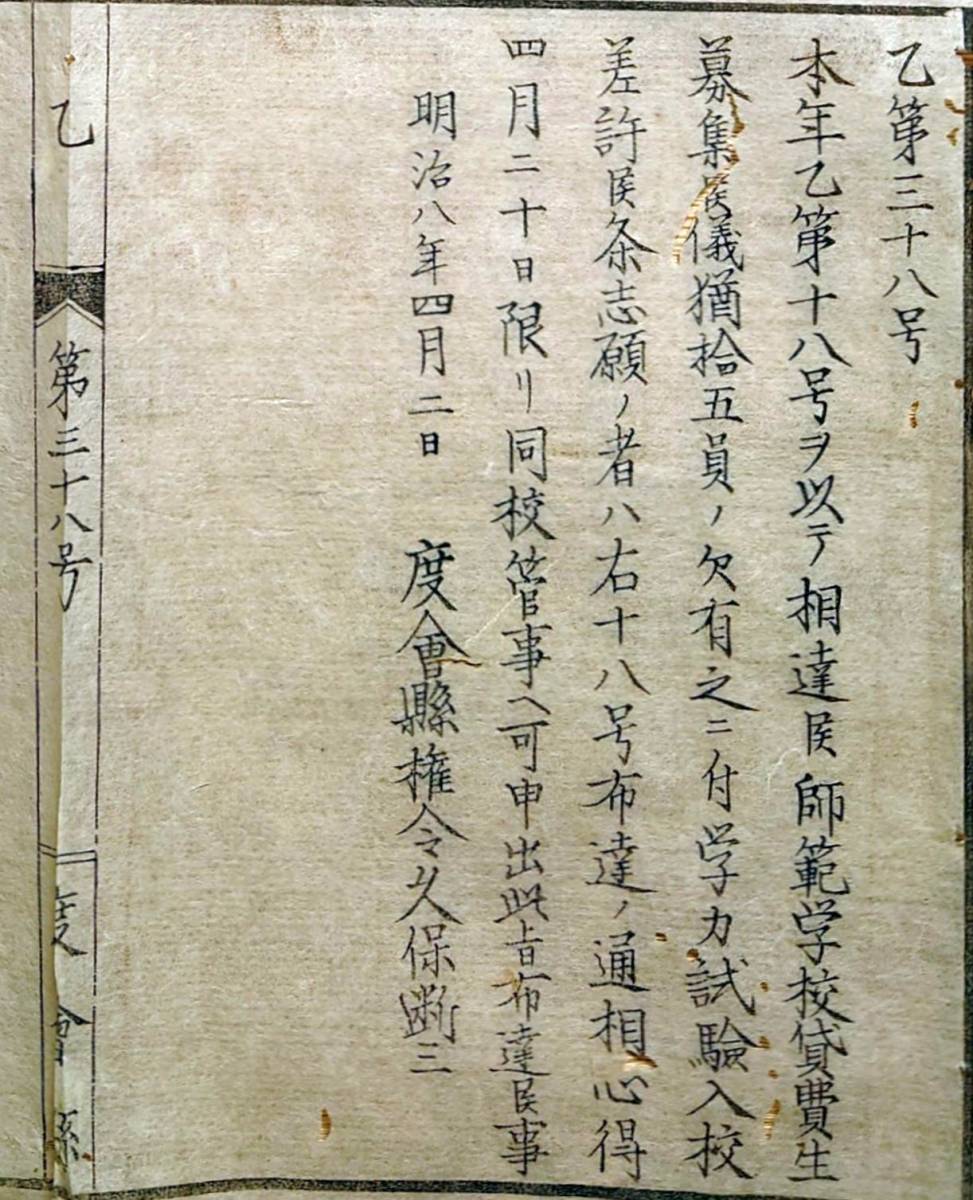 乙第三十八号
本年乙第十八号ヲ以テ相達候師範学校貸費生
募集候儀猶拾五員ノ欠有之ニ付学力試験入校
差許候条志願ノ者ハ右十八号布達ノ通相心得
四月二十日限リ同校管事ヘ可申出此旨布達候事
明治八年四月二日 度會縣権令久保断三
乙 第三十八号 度會縣